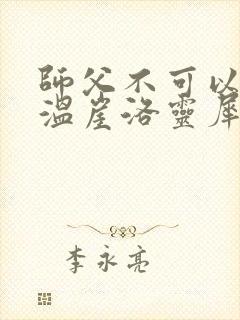 師父不可以
溫崖洛靈犀
李永亮